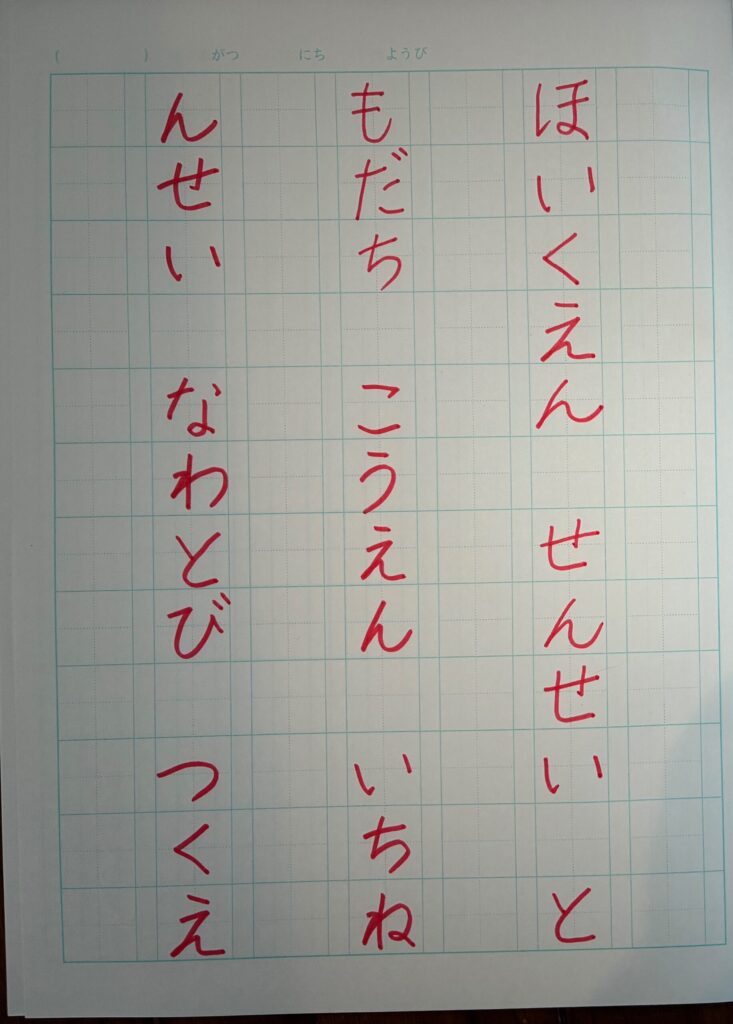 (　　　)　がつ　にち　ようび
ほいくえん　せんせい　と
もだち　こうえん　いちね
んせい　なわとび　つくえ